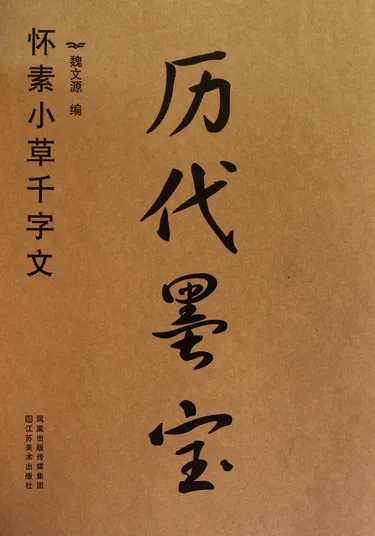 历代墨宝
怀素小草千字文
魏文源 编
凤凰出版传媒集团
江苏美术出版社